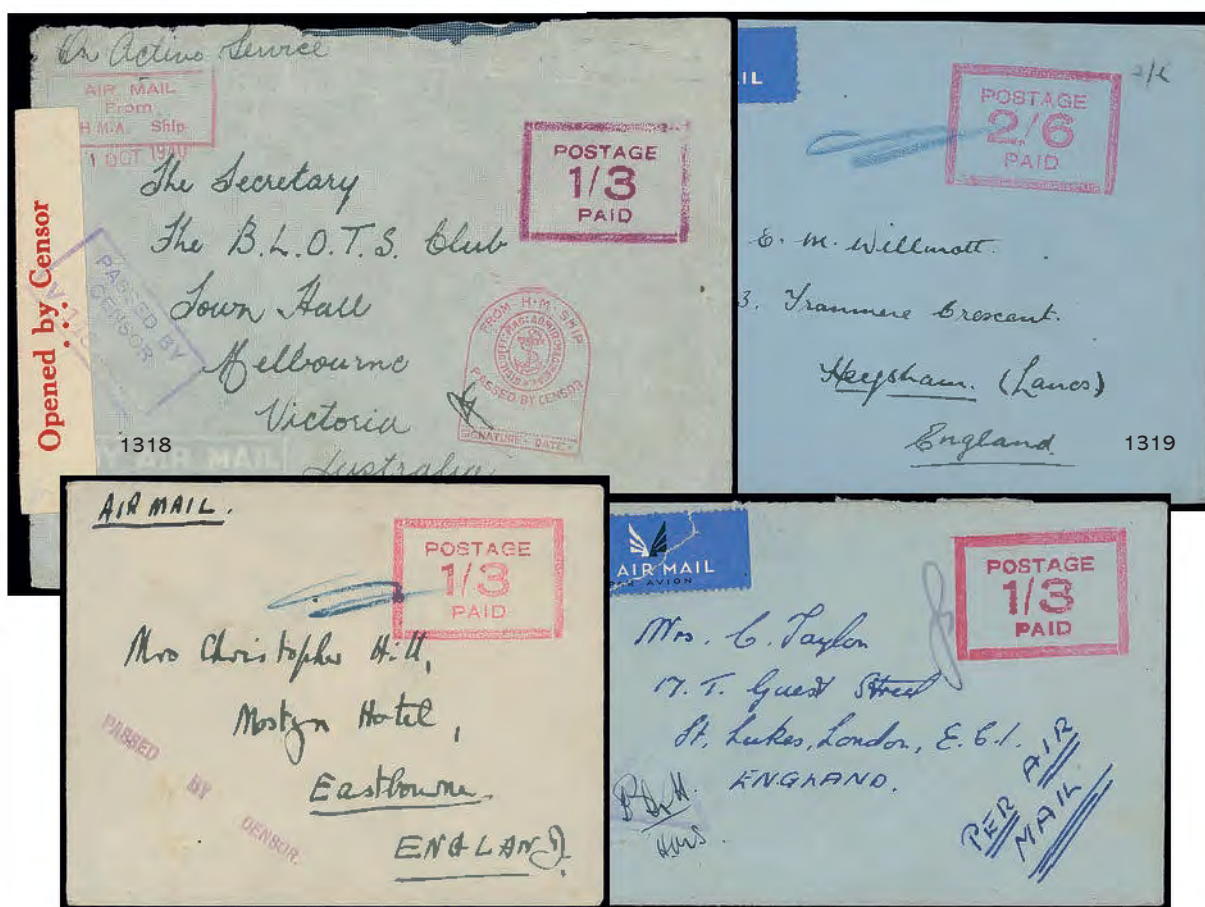 On Active Service
AIR MAIL
From
H.M.A. Ship
1 OCT 1940
POSTAGE
1/3
PAID
The Secretary
The B.L.O.T.S. Club
Town Hall
Melbourne
Victoria
Australia
Opened by Censor
PASSED BY
CENSOR
FROM H.M. SHIP
PASSED BY CENSOR
SIGNATURE - DATE
BY AIR MAIL
1318
IL
2/6
POSTAGE
2/6
PAID
E. M. Willmott.
3. Tranmere Crescent.
Heysham. (Lancs)
England
1319
AIR MAIL.
POSTAGE
1/3
PAID
Mrs Christopher Hill,
Mostyn Hotel,
Eastbourne.
ENGLAND.
PASSED
BY
CENSOR.
AIR MAIL
PAR AVION
POSTAGE
1/3
PAID
Mrs. C. Taylor
17. T. Guest Street
St. Lukes, London, E.C.1.
ENGLAND.
PER AIR
MAIL